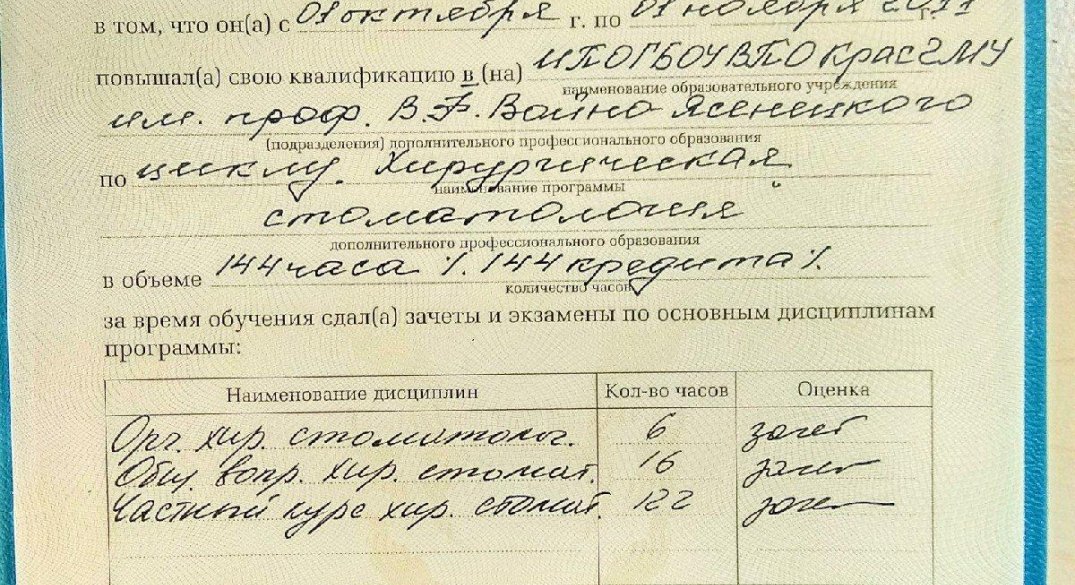 в том, что он(а) с 01 октября г. по 01 ноября 2011 г.
повышал(а) свою квалификацию в (на) ИПО ГБОУ ВПО КрасГМУ
наименование образовательного учреждения
им. проф. В.Ф. Войно Ясенецкого
(подразделения) дополнительного профессионального образования
по циклу. Хирургическая
наименование программы
стоматология
дополнительного профессионального образования
в объеме 144 часа \. 144 кредита \.
количество часов
за время обучения сдал(а) зачеты и экзамены по основным дисциплинам
программы:
Наименование дисциплин Кол-во часов Оценка
Орг. хир. стоматолог. 6 зачет
Общ. вопр. хир. стомат. 16 зачет
Частный курс хир. стомат. 122 зачет